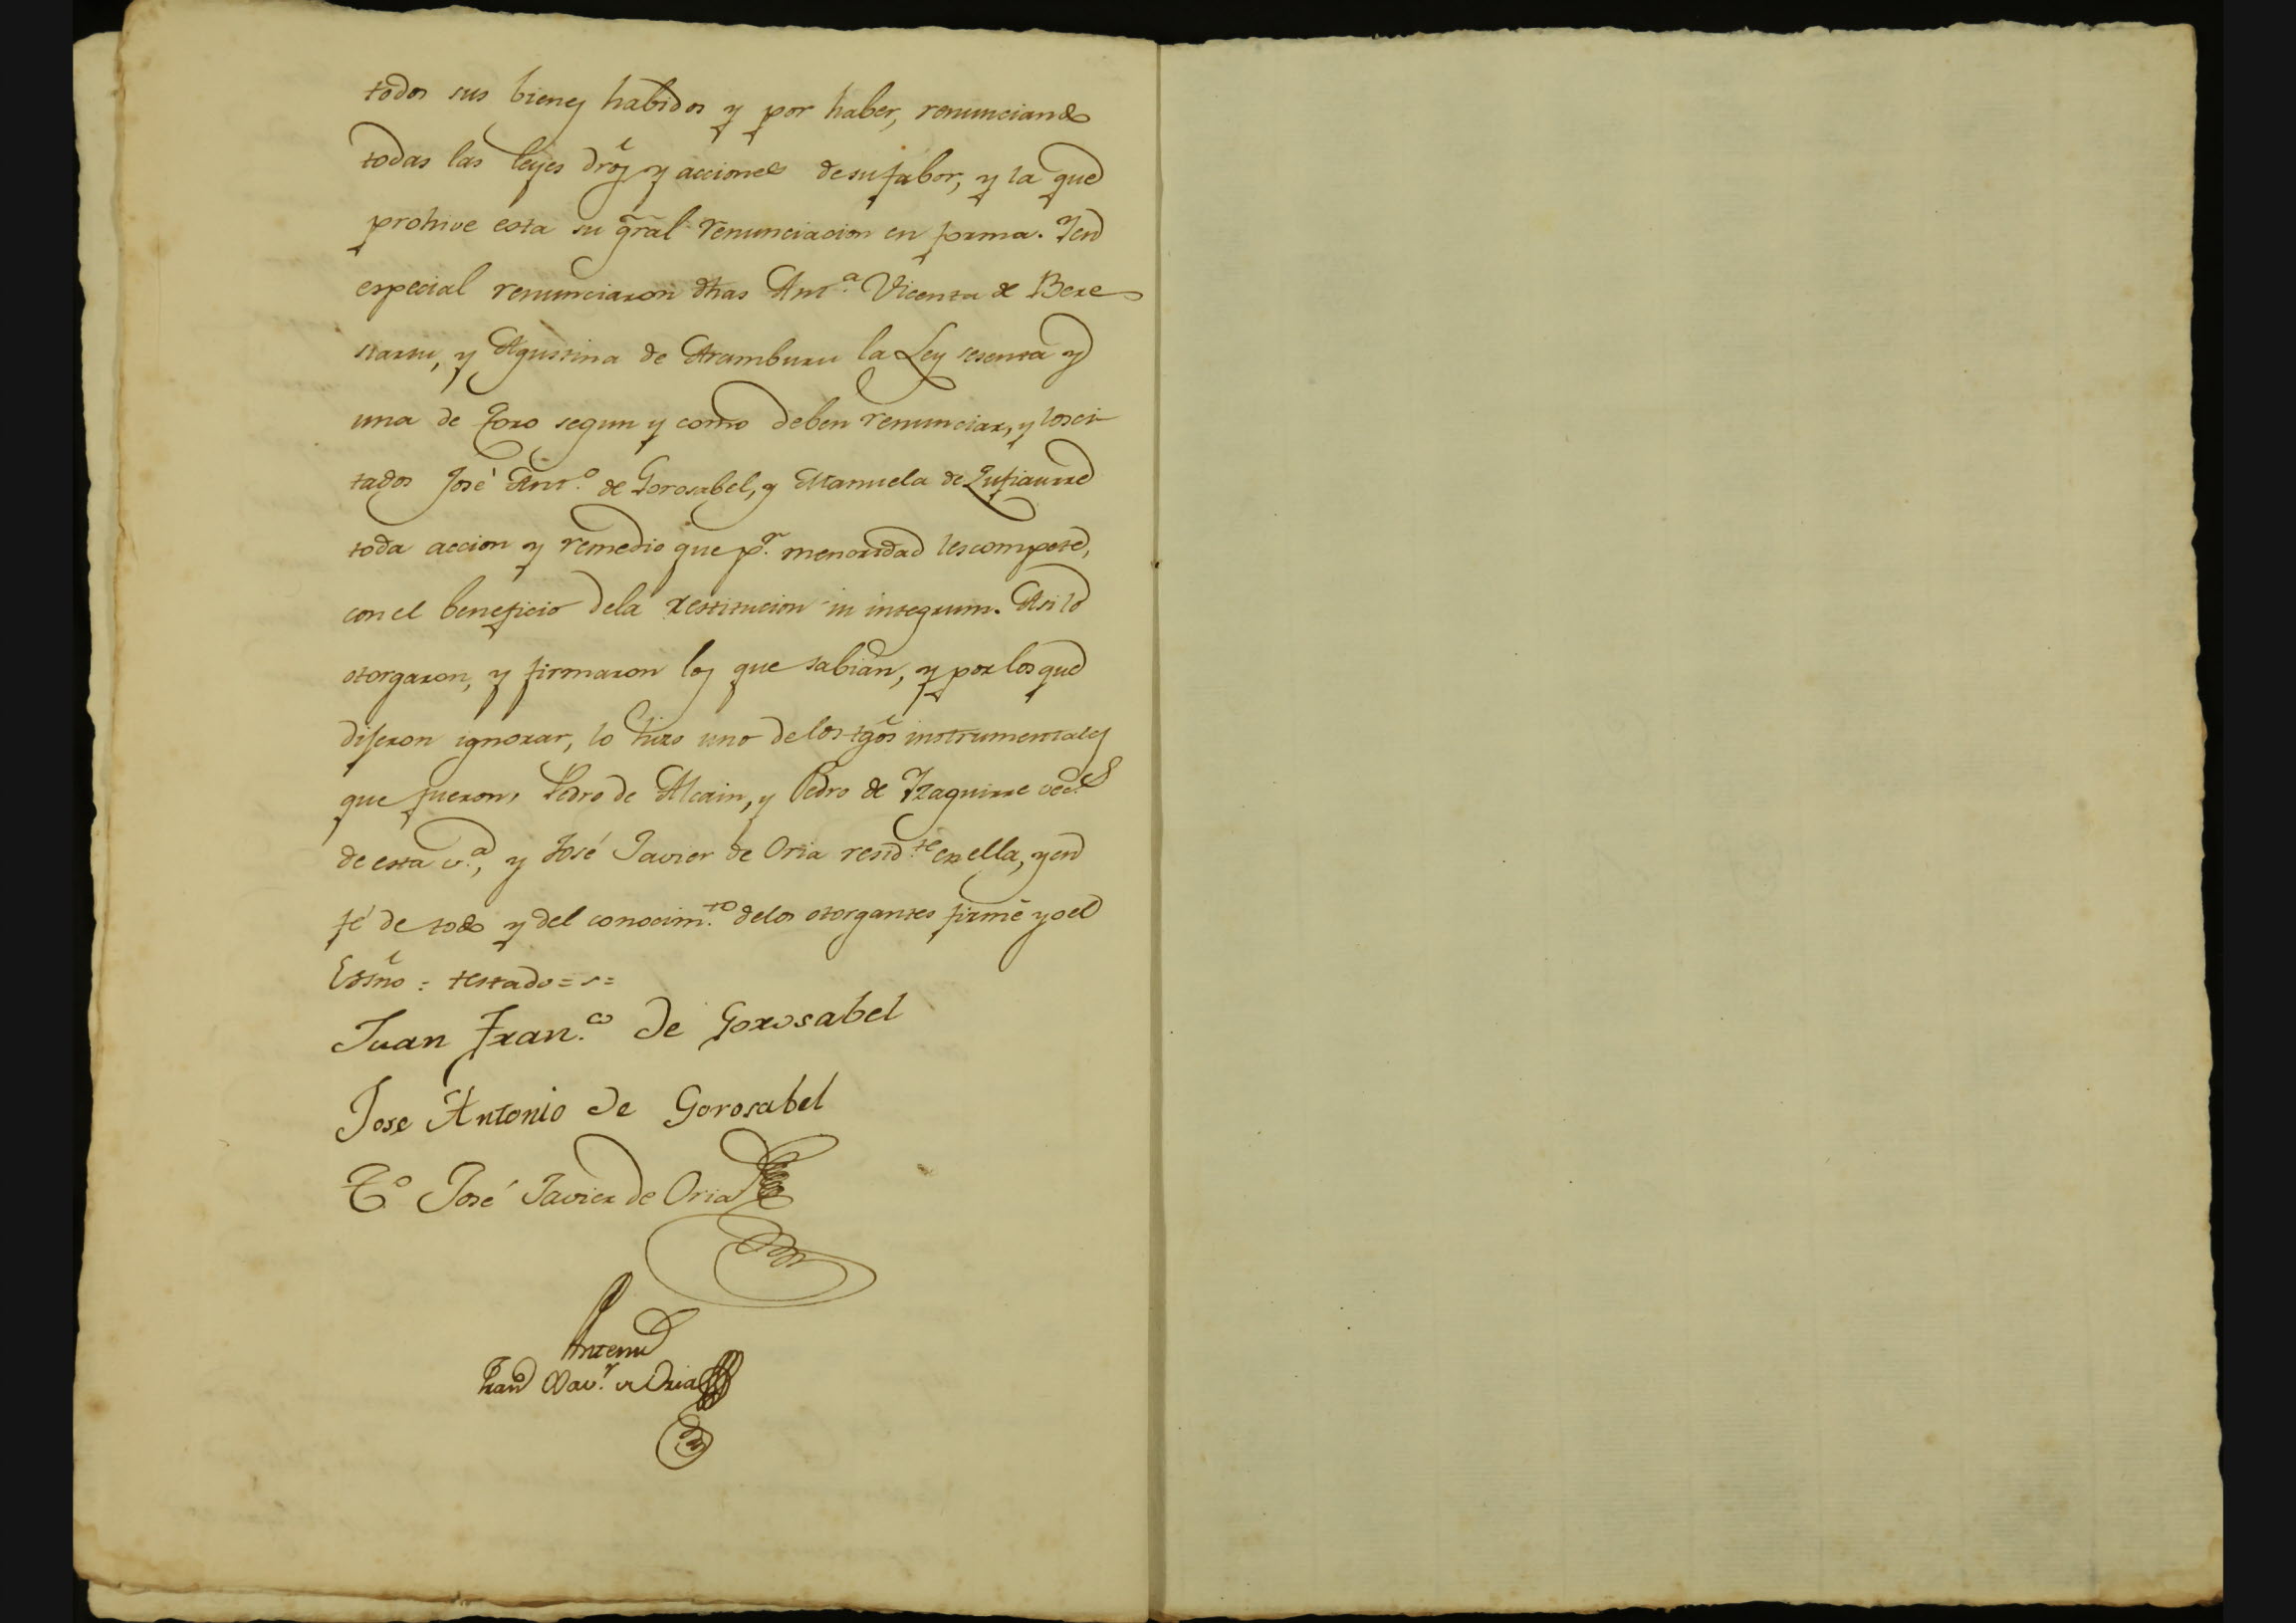 todos sus bienes habidos y por haber, renunciando
todas las leyes drõs y acciones de su fabor, y la que
prohive esta su gr̃al renunciacion en forma. Y en
especial renunciaron dhas Ant.ª Vicenta de Bere
siartu, y Agustina de Aramburu la Ley sesenta y
una de Toro segun y como deben renunciar, y los ci-
tados José Ant.º de Gorosabel, y Manuela de
toda accion y remedio que p.r menoridad les compete,
con el beneficio de la restitucion in integrum. Asi lo
otorgaron, y firmaron los que sabian, y por los que
dijeron ignorar, lo hizo uno de los tgõs instrumentales
que fueron, Pedro de Alcain, y Pedro de Yzaguirre vec.s
de esta v.ª, y José Javier de Oria resid.te en ella, y en
fé de todo y del conocim.to de los otorgantes firmé yo el
Essño : testado = s =
Juan Fran.co de Gorosabel
Jose Antonio de Gorosabel
T.º José Javier de Oria
Antemi
Xav.r de Oria